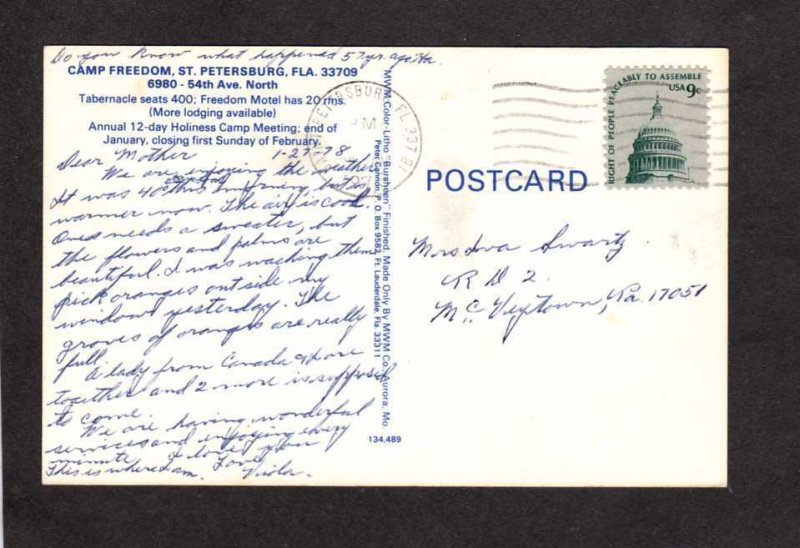 Do you know what happened 57 yr. ago. Ha.
CAMP FREEDOM, ST. PETERSBURG, FLA. 33709
6980 - 54th Ave. North
Tabernacle seats 400; Freedom Motel has 20 rms.
(More lodging available)
Annual 12-day Holiness Camp Meeting: end of
January, closing first Sunday of February.
Dear Mother 1-27-78
We are enjoying the weather
It was 40° this morning but is
warmer now. The air is cool.
Ones needs a sweater, but
the flowers and palms are
beautiful. I was waching them
pick oranges outside my
windows yesterday. The
groves of oranges are really
full.
A lady from Canada & I are
together and 2 more is supposed
to come.
We are having wonderful
services and enjoying every
minute. I love you
Love,
This is where I am. Viola.
MWM Color-Litho "Buraheen" Finished, Made Only By MWM Co., Aurora, Mo.
Peter Gannon, P.O. Box 9582, Ft. Lauderdale, Fla. 33311
134,489
ST. PETERSBURG, FL 337
PM
RIGHT OF PEOPLE PEACEABLY TO ASSEMBLE
USA 9c
POSTCARD
Mrs Iva Swartz
R D 2.
Mc Veytown, Pa. 17051